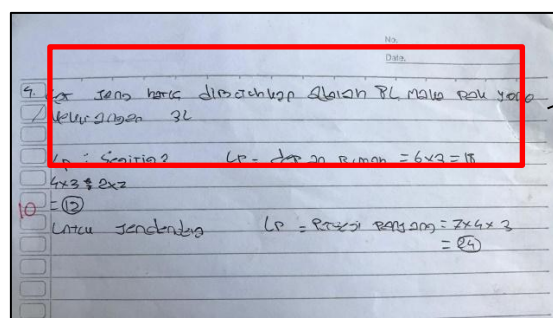 No.
Date.
9. Cat yang harus dibutuhkan adalah 8L maka pak yono
kekurangan 3L
LP = Segitiga LP = depan rumah = 6x3 = 18
4x3 2x2
= 12
10
Untuk jendela LP = Persegi panjang = 2x4x3
= 24